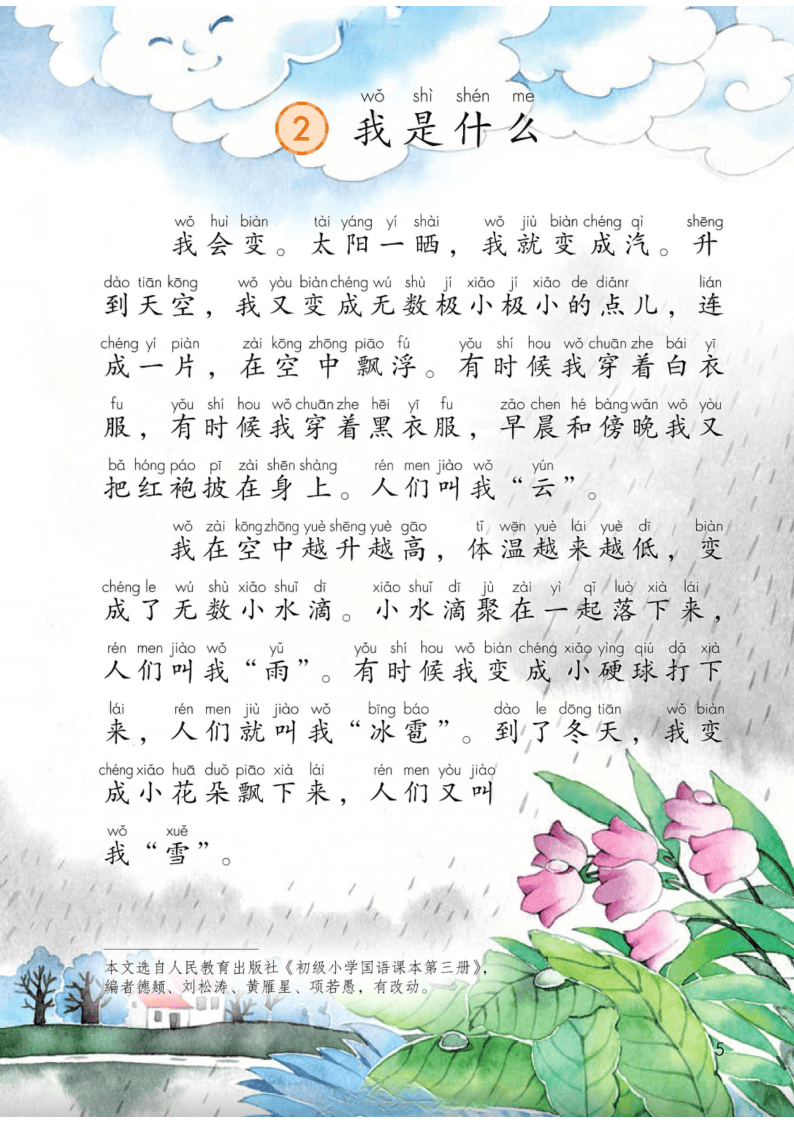 wǒ shì shén me
2 我是什么
wǒ huì biàn tài yáng yí shài wǒ jiù biàn chéng qì shēng
我会变。太阳一晒，我就变成汽。升
dào tiān kōng wǒ yòu biàn chéng wú shù jí xiǎo jí xiǎo de diǎnr lián
到天空，我又变成无数极小极小的点儿，连
chéng yí piàn zài kōng zhōng piāo fú yǒu shí hou wǒ chuān zhe bái yī
成一片，在空中飘浮。有时候我穿着白衣
fu yǒu shí hou wǒ chuān zhe hēi yī fu zǎo chen hé bàng wǎn wǒ yòu
服，有时候我穿着黑衣服，早晨和傍晚我又
bǎ hóng páo pī zài shēn shàng rén men jiào wǒ yún
把红袍披在身上。人们叫我“云”。
wǒ zài kōng zhōng yuè shēng yuè gāo tǐ wēn yuè lái yuè dī biàn
我在空中越升越高，体温越来越低，变
chéng le wú shù xiǎo shuǐ dī xiǎo shuǐ dī jù zài yì qǐ luò xià lái
成了无数小水滴。小水滴聚在一起落下来，
rén men jiào wǒ yǔ yǒu shí hou wǒ biàn chéng xiǎo yìng qiú dǎ xià
人们叫我“雨”。有时候我变成小硬球打下
lái rén men jiù jiào wǒ bīng báo dào le dōng tiān wǒ biàn
来，人们就叫我“冰雹”。到了冬天，我变
chéng xiǎo huā duǒ piāo xià lái rén men yòu jiào
成小花朵飘下来，人们又叫
wǒ xuě
我“雪”。
本文选自人民教育出版社《初级小学国语课本第三册》，
编者德颎、刘松涛、黄雁星、项若愚，有改动。
5